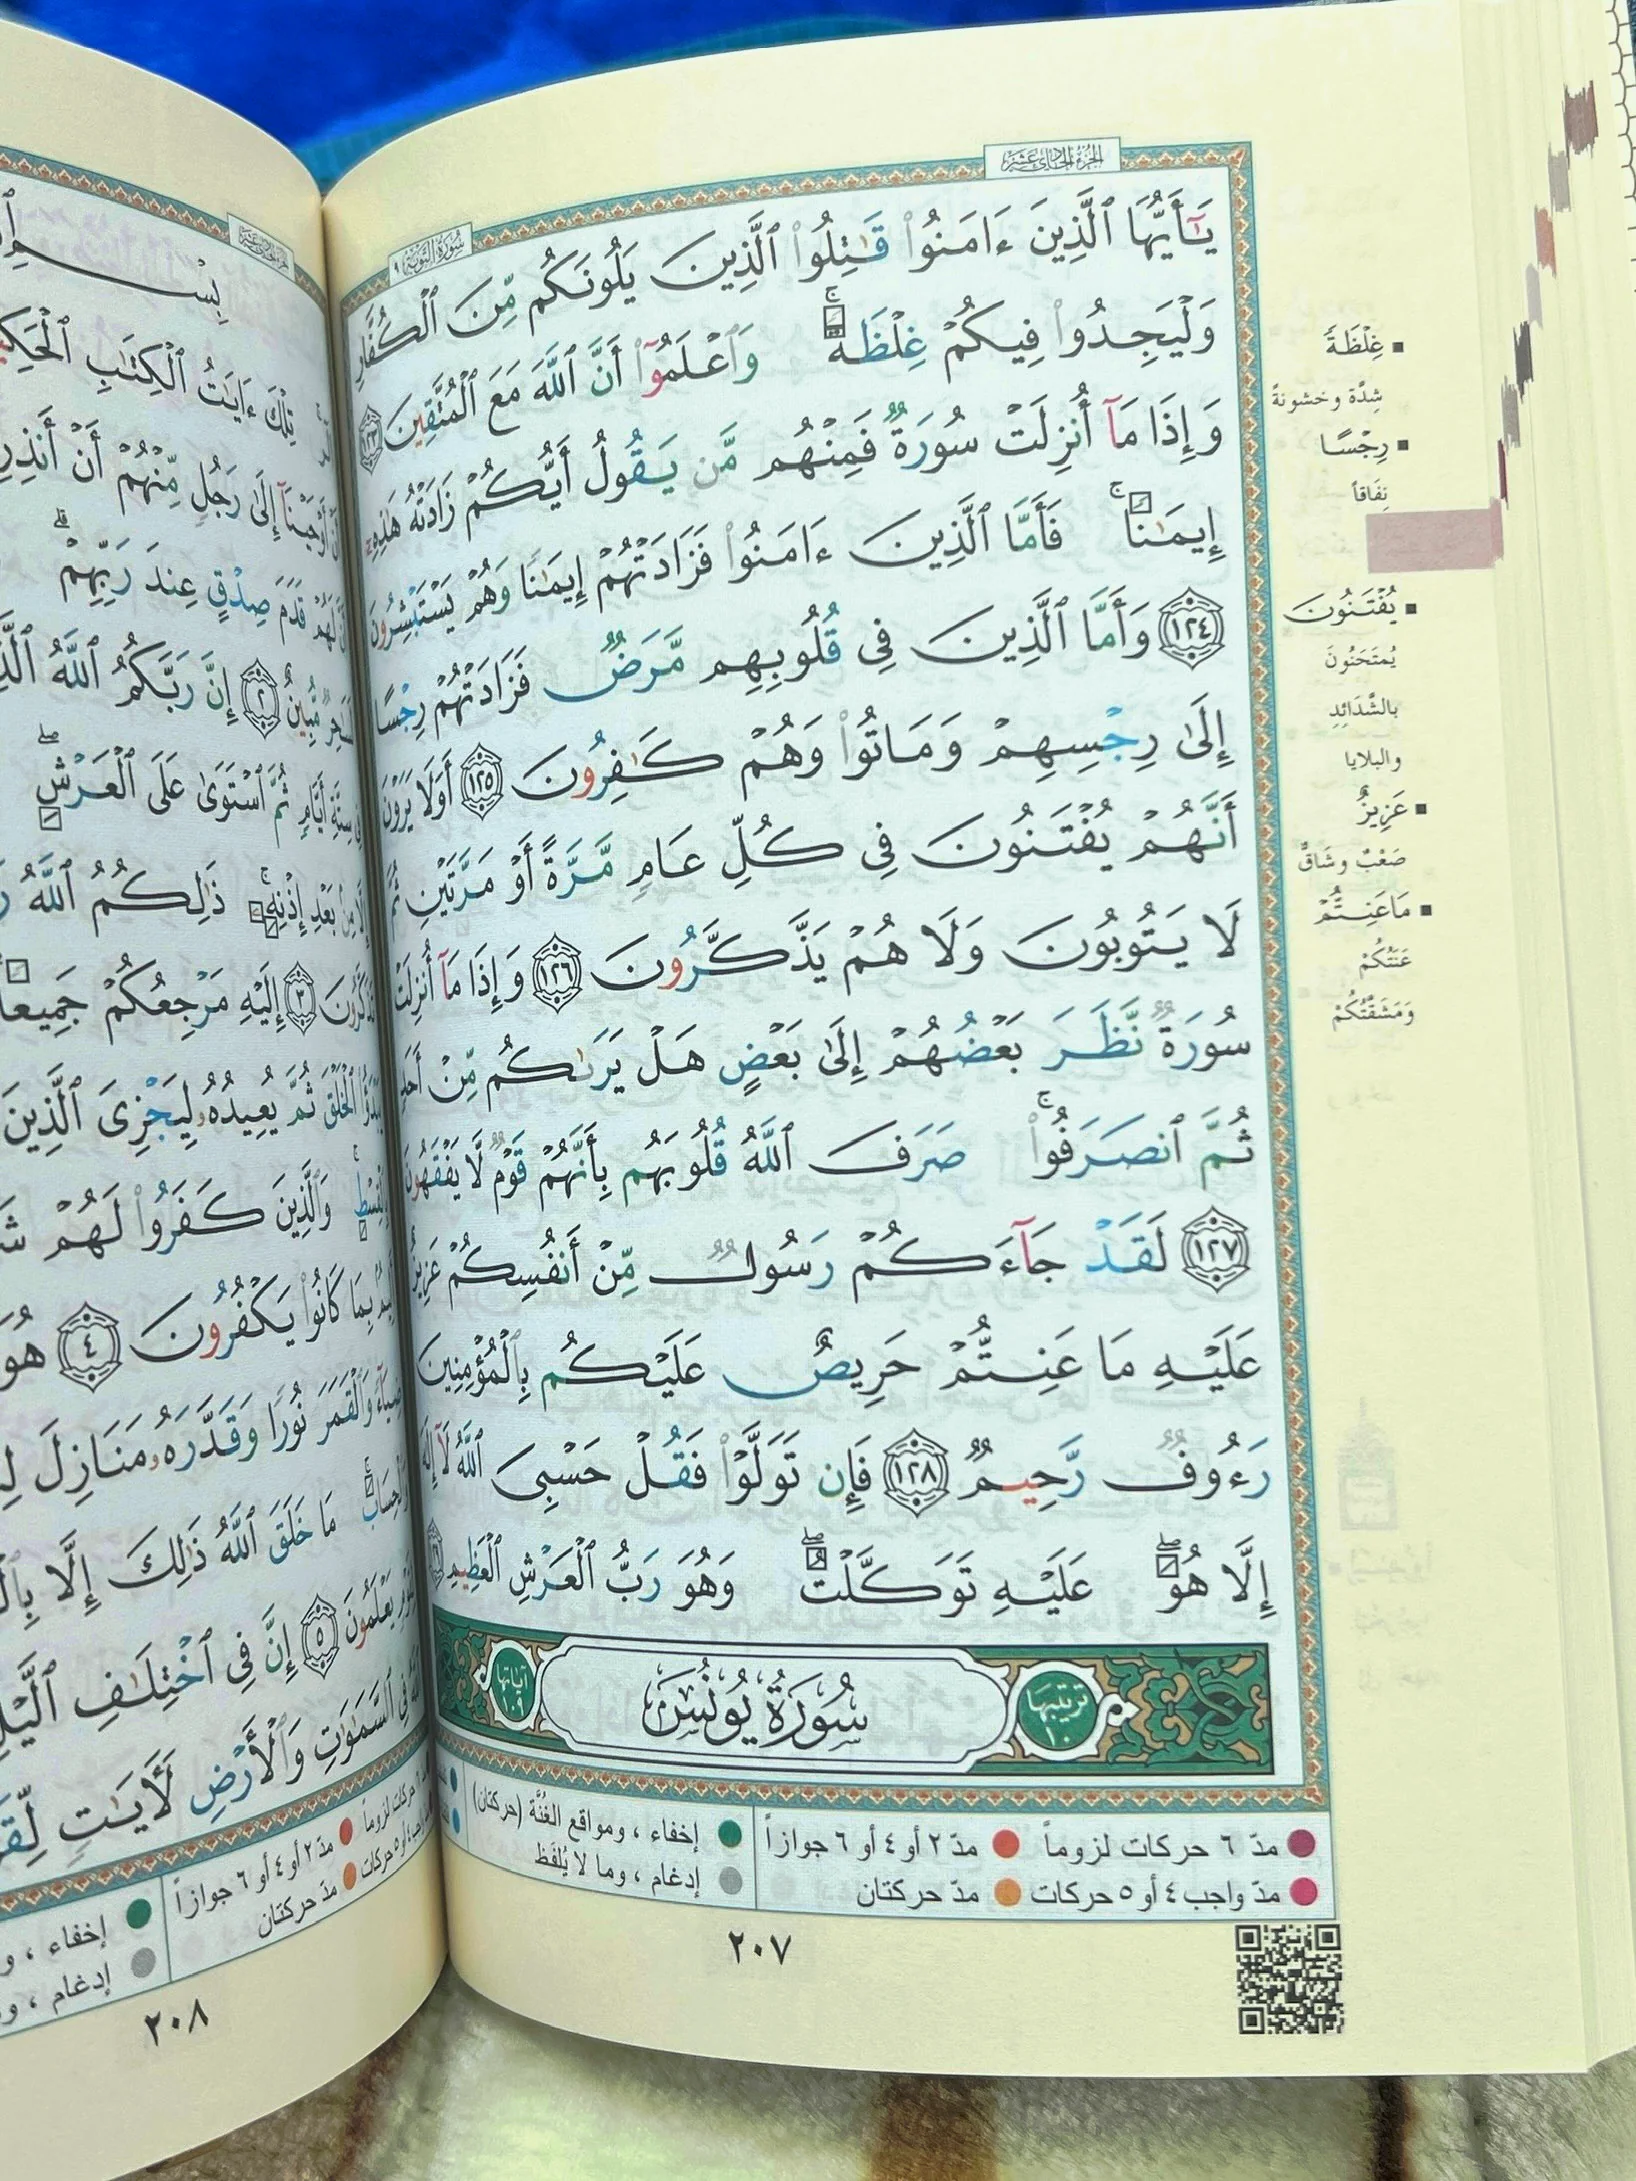 الجزء الحادي عشر
سورة التوبة ٩
يَٰٓأَيُّهَا ٱلَّذِينَ ءَامَنُوا۟ قَٰتِلُوا۟ ٱلَّذِينَ يَلُونَكُم مِّنَ ٱلْكُفَّارِ
وَلْيَجِدُوا۟ فِيكُمْ غِلْظَةً ۚ وَٱعْلَمُوٓا۟ أَنَّ ٱللَّهَ مَعَ ٱلْمُتَّقِينَ ١٢٣
وَإِذَا مَآ أُنزِلَتْ سُورَةٌ فَمِنْهُم مَّن يَقُولُ أَيُّكُمْ زَادَتْهُ هَٰذِهِۦٓ
إِيمَٰنًا ۚ فَأَمَّا ٱلَّذِينَ ءَامَنُوا۟ فَزَادَتْهُمْ إِيمَٰنًا وَهُمْ يَسْتَبْشِرُونَ
١٢٤ وَأَمَّا ٱلَّذِينَ فِى قُلُوبِهِم مَّرَضٌ فَزَادَتْهُمْ رِجْسًا
إِلَىٰ رِجْسِهِمْ وَمَاتُوا۟ وَهُمْ كَٰفِرُونَ ١٢٥ أَوَلَا يَرَوْنَ
أَنَّهُمْ يُفْتَنُونَ فِى كُلِّ عَامٍ مَّرَّةً أَوْ مَرَّتَيْنِ ثُمَّ
لَا يَتُوبُونَ وَلَا هُمْ يَذَّكَّرُونَ ١٢٦ وَإِذَا مَآ أُنزِلَتْ
سُورَةٌ نَّظَرَ بَعْضُهُمْ إِلَىٰ بَعْضٍ هَلْ يَرَىٰكُم مِّنْ أَحَدٍ
ثُمَّ ٱنصَرَفُوا۟ ۚ صَرَفَ ٱللَّهُ قُلُوبَهُم بِأَنَّهُمْ قَوْمٌ لَّا يَفْقَهُونَ
١٢٧ لَقَدْ جَآءَكُمْ رَسُولٌ مِّنْ أَنفُسِكُمْ عَزِيزٌ
عَلَيْهِ مَا عَنِتُّمْ حَرِيصٌ عَلَيْكُم بِٱلْمُؤْمِنِينَ
رَءُوفٌ رَّحِيمٌ ١٢٨ فَإِن تَوَلَّوْا۟ فَقُلْ حَسْبِىَ ٱللَّهُ لَآ إِلَٰهَ
إِلَّا هُوَ ۖ عَلَيْهِ تَوَكَّلْتُ ۖ وَهُوَ رَبُّ ٱلْعَرْشِ ٱلْعَظِيمِ
ترتيبها ١٠
سُورَةُ يُونُسَ
آياتها ١٠٩
غِلْظَةً
شِدَّة وخشونةً
رِجْسًا
نِفَاقاً
يُفْتَنُونَ
يُمتَحَنُونَ
بالشَّدَائِدِ
والبلايا
عَزِيزٌ
صَعْبٌ وشَاقٌّ
مَاعَنِتُّمْ
عَنَتُكُمْ
وَمَشَقَّتُكُمْ
مدّ ٦ حركات لزوماً
مدّ ٢ أو ٤ أو ٦ جوازاً
إخفاء ، ومواقع الغُنَّة (حركتان)
مدّ واجب ٤ أو ٥ حركات
مدّ حركتان
إدغام ، وما لا يُلفَظ
٢٠٧
تِلْكَ ءَايَٰتُ ٱلْكِتَٰبِ
أَوْحَيْنَآ إِلَىٰ رَجُلٍ مِّنْهُمْ أَنْ أَنذِرِ
لَهُمْ قَدَمَ صِدْقٍ عِندَ رَبِّهِمْ ۗ
مُّبِينٌ ٢ إِنَّ رَبَّكُمُ ٱللَّهُ
سِتَّةِ أَيَّامٍ ثُمَّ ٱسْتَوَىٰ عَلَى ٱلْعَرْشِ ۖ
مِنۢ بَعْدِ إِذْنِهِۦ ۚ ذَٰلِكُمُ ٱللَّهُ
٣ إِلَيْهِ مَرْجِعُكُمْ جَمِيعًا
ٱلْخَلْقَ ثُمَّ يُعِيدُهُۥ لِيَجْزِىَ ٱلَّذِينَ
وَٱلَّذِينَ كَفَرُوا۟ لَهُمْ
بِمَا كَانُوا۟ يَكْفُرُونَ ٤
وَٱلْقَمَرَ نُورًا وَقَدَّرَهُۥ مَنَازِلَ
مَا خَلَقَ ٱللَّهُ ذَٰلِكَ إِلَّا
يَعْلَمُونَ ٥ إِنَّ فِى ٱخْتِلَٰفِ
ٱلسَّمَٰوَٰتِ وَٱلْأَرْضِ لَءَايَٰتٍ
مدّ ٢ أو ٤ أو ٦ جوازاً
إخفاء ،
مدّ حركتان
إدغام ،
٢٠٨